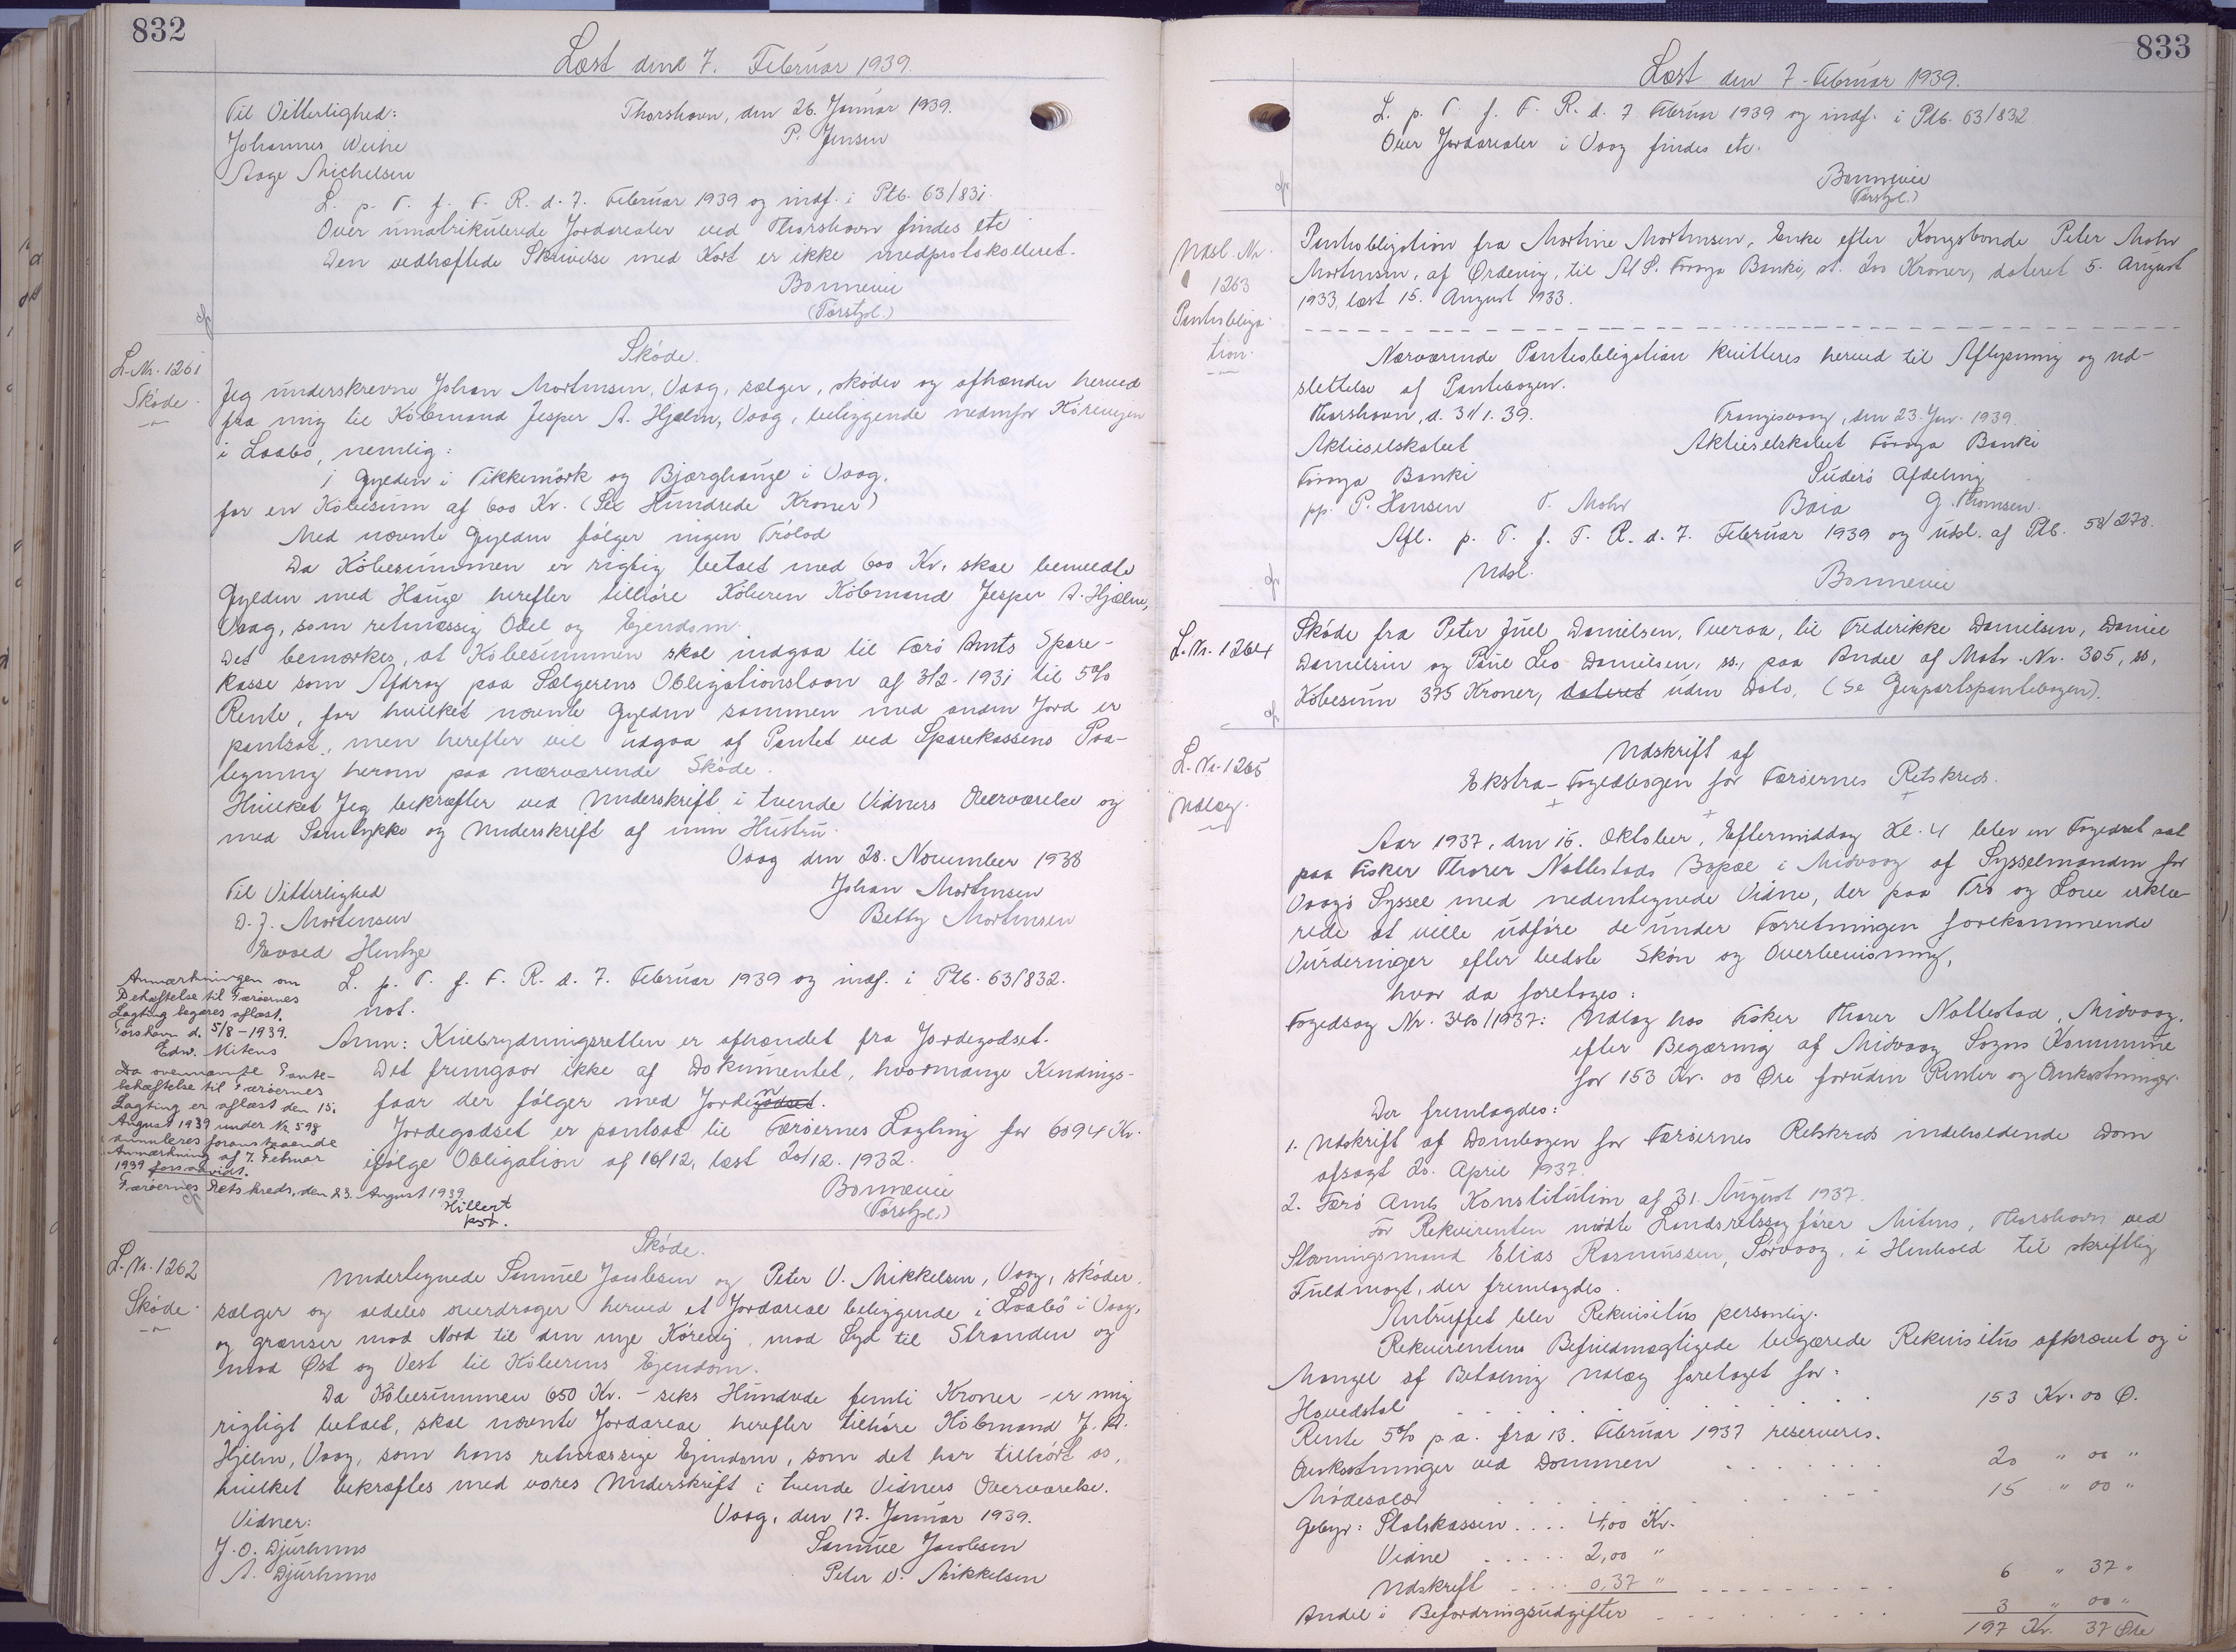 832
Læst den 7. Februar 1939.
Til Vitterlighed:
Thorshavn, den 26. Januar 1939.
Johannes Weihe
P. Jensen
Aage Michelsen
L. p. T. f. F. R. d. 7. Februar 1939 og indf. i Ptb. 63/831.
Over umatrikulerede Jordarealer ved Thorshavn findes etc
Den vedhæftede Skrivelse med Kort er ikke medprotokolleret.
Bonnevie
(Forstpl.)
L. Nr. 1261
Skøde.
Skøde.
Jeg underskrevne Johan Mortensen, Vaag, sælger, skøder og afhænder herved
fra mig til Købmand Jesper A. Hjelm, Vaag, beliggende nedenfor Køreveyen
i Laabø, nemlig:
1 Gylden i Tikkemørk og Bjærghauge i Vaag.
for en Købesum af 600 Kr. (Sex Hundrede Kroner)
Med nævnte Gylden følger ingen Trølad
Da Købesummen er rigtig betalt med 600 Kr. skal bemeldte
Gylden med Hauge herefter tilhøre Køberen Købmand Jesper A. Hjelm,
Vaag, som retmæssig Odel og Ejendom.
Det bemærkes, at Købesummen skal indgaa til Færø Amts Spare-
kasse som Afdrag paa Sælgerens Obligationslaan af 3/2-1931 til 5%
Rente, for hvilket nævnte Gylden sammen med anden Jord er
pantsat, men herefter vil udgaa af Pantet ved Sparekassens Paa-
tegning herom paa nærværende Skøde.
Hvilket Jeg bekræfter ved Underskrift i tvende Vidners Overværelse og
med Samtykke og Underskrift af min Hustru.
Vaag den 28. November 1938
Til Vitterlighed
Johan Mortensen
D. J. Mortensen
Betty Mortensen
Evald Hentze
L. p. T. f. F. R. d. 7. Februar 1939 og indf. i Ptb. 63/832.
not.
Anm: Knebrydningsretten er afhændet fra Jordegodset.
Det fremgaar ikke af Dokumentet, hvormange Kendings-
faar der følger med Jorden godset.
Jordegodset er pantsat til Færøernes Lagting for 6094 Kr.
ifølge Obligation af 16/12, læst 20/12. 1932.
Bonnevie
(Forstpl.)
Anmærkningen om
Behæftelse til Færøernes
Lagting begæres aflæst.
Tórshavn d. 5/8-1939.
Edw. Mitens
Da ovennævnte Pante-
behæftelse til Færøernes
Lagting er aflæst den 15.
August 1939 under Nr. 598
annuleres foranstaaende
Anmærkning af 7. Februar
1939 forsaavidt.
Færøernes Retskreds, den 23. August 1939
Hillert
kst.
L. Nr. 1262
Skøde.
Skøde.
Undertegnede Samuel Jacobsen og Peter V. Mikkelsen, Vaag, skøder.
sælger og aldeles overdrager herved et Jordareal beliggende i Laabø i Vaag,
og grænser mod Nord til den nye Kørevej, mod Syd til Stranden og
mod Øst og Vest til Køberens Ejendom.
Da Købesummen 650 Kr. - seks Hundrede femti Kroner - er mig
rigtigt betalt, skal nævnte Jordareal herefter tilhøre Købmand J. A.
Hjelm, Vaag, som hans retmæssige Ejendom, som det har tilhørt os,
hvilket bekræftes med vores Underskrift i tvende Vidners Overværelse.
Vidner:
Vaag, den 17. Januar 1939.
J. O. Djurhuus
Samuel Jacobsen
A. Djurhuus
Peter V. Mikkelsen
833
Læst den 7. Februar 1939.
L. p. T. f. F. R. d. 7. Februar 1939 og indf. i Ptb. 63/832
Over Jordarealer i Vaag findes etc.
Bonnevie
(Forstpl.)
Udsl. Nr.
1263
Pantobliga-
tion.
Pantobligation fra Martine Mortensen, Enke efter Kongsbonde Peter Mohr
Mortensen, af Ørdevig, til A/S. Føroya Banki, st. 200 Kroner, dateret 5. August
1933, læst 15. August 1933.
Nærværende Pantobligation kvitteres herved til Aflysning og ud-
slettelse af Pantebogen.
Thorshavn, d. 31/1. 39.
Trangisvaag, den 23. Jan. 1939.
Aktieselskabet
Aktieselskabet Føroya Banki
Føroya Banki
Suderø Afdeling
pp. P. Hansen
T. Mohr
Baia
G. Thomsen.
Afl. p. T. f. F. R. d. 7. Februar 1939 og udsl. af Ptb. 58/278.
Udsl.
Bonnevie
L. Nr. 1264
Skøde fra Peter Juel Danielsen, Tveraa, til Frederikke Danielsen, Daniel
Danielsen og Poul Leo Danielsen, ss., paa Andel af Matr. Nr. 305, ss,
Købesum 375 Kroner, dateret uden Dato. (Se Genpartspantebogen).
L. Nr. 1265
Udlæg.
Udskrift af
Ekstra-Fogedbogen for Færøernes Retskreds.
Aar 1937, den 16. Oktober, Eftermiddag Kl. 4 blev en Fogedret sat
paa Fisker Thorer Nattestads Bopæl i Midvaag af Sysselmanden for
Vaagø Syssel med nedentegnede Vidne, der paa Tro og Love erklæ-
rede at ville udføre de under Forretningen forekommende
Vurderinger efter bedste Skøn og Overbevisning,
hvor da foretoges:
Fogedsag Nr. 340/1937: Udlæg hos Fisker Thorer Nattestad, Midvaag.
efter Begæring af Midvaag Sogns Kommune
for 153 Kr. 00 Øre foruden Renter og Omkostninger.
Der fremlagdes:
1. Udskrift af Dombogen for Færøernes Retskreds indeholdende Dom
afsagt 20. April 1937.
2. Færø Amts Konstitution af 31. August 1937.
For Rekvirenten mødte Landsretssagfører Mitens, Thorshavn ved
Stævningsmand Elias Rasmussen, Sørvaag, i Henhold til skriftlig
Fuldmagt, der fremlagdes.
Antruffet blev Rekvisitus personlig.
Rekvirentens Befuldmægtigede begærede Rekvisitus afkrævet og i
Mangel af Betaling Udlæg foretaget for:
Hovedstol . . . . . . . 153 Kr. 00 Ø.
Rente 5% p.a. fra 13. Februar 1937 reserveres.
Omkostninger ved Dommen . . . . . . 20 " 00 "
Mødesalær . . . . . . . 15 " 00 "
Gebyr: Statskassen .... 4,00 Kr.
Vidne ..... 2,00 "
Udskrift .... 0,37 " - - - - - - - 6 " 37 "
Andel i Befordringsudgifter - - - - - - 3 " 00 "
197 Kr. 37 Øre